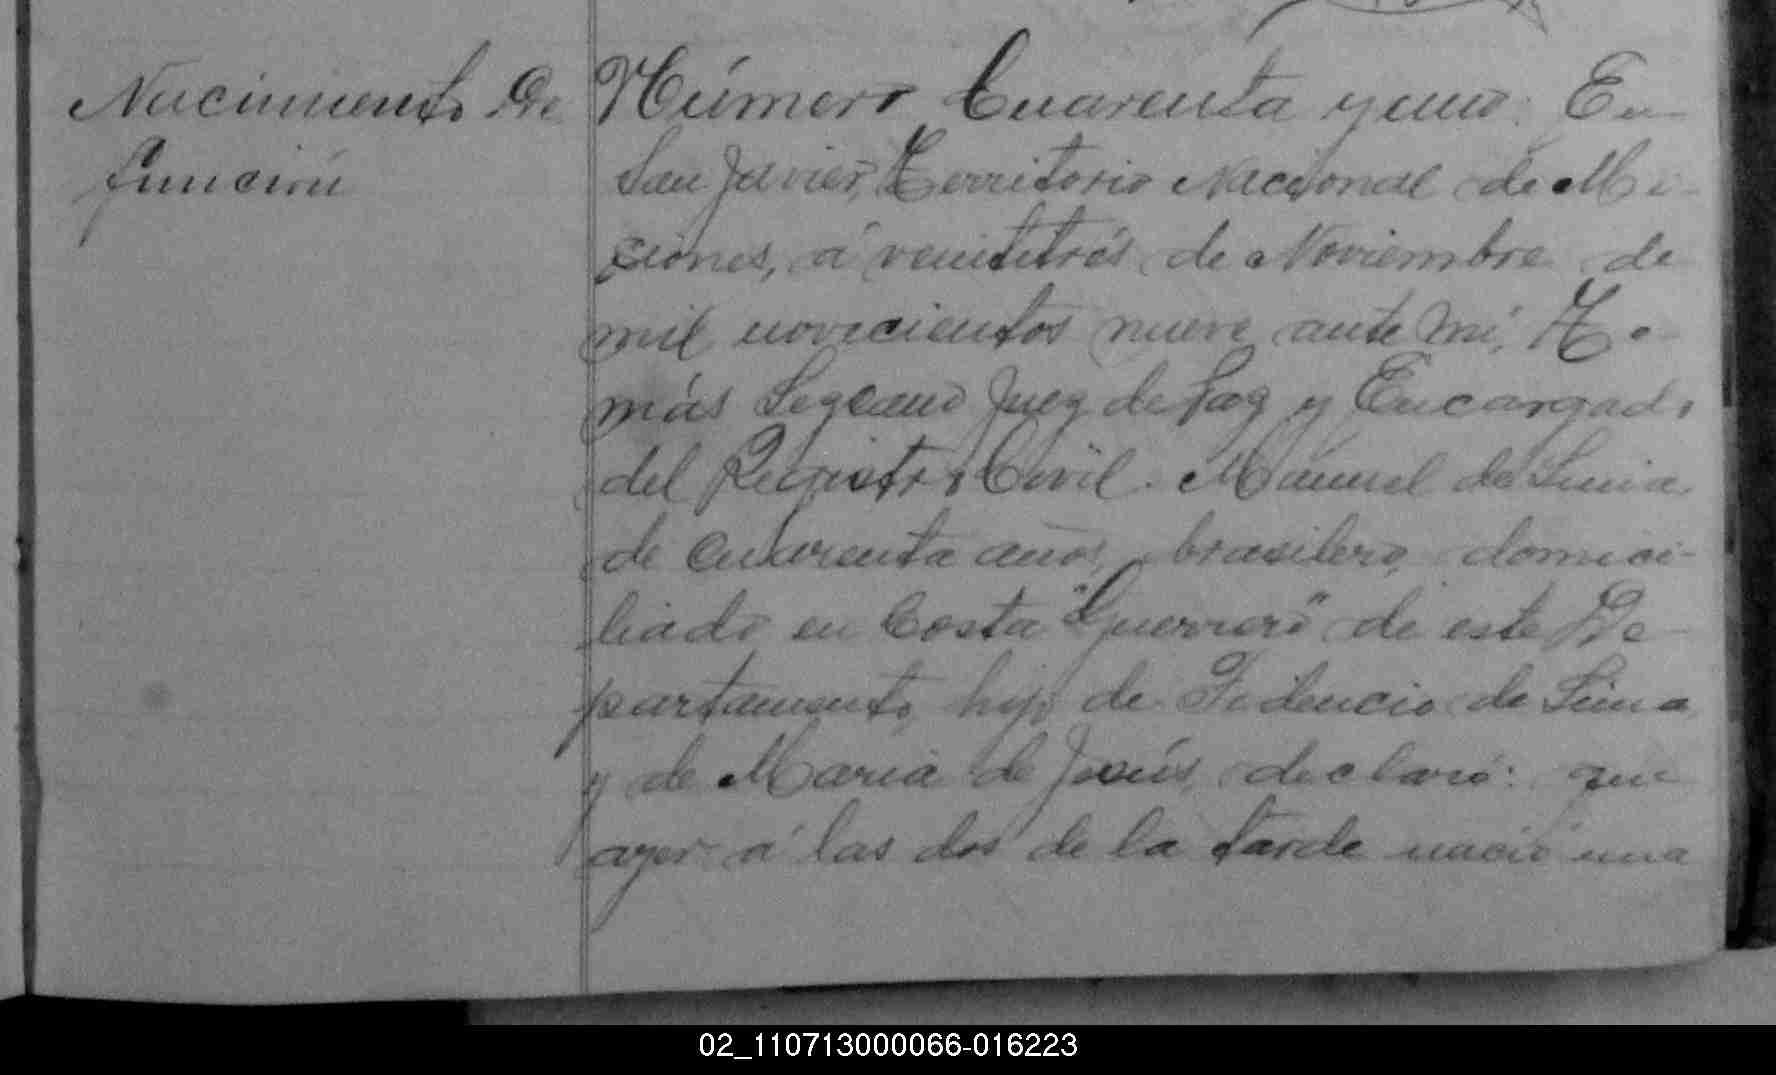 Nacimiento De
función
Número Cuarenta y uno. En
San Javier, Territorio Nacional de Mi-
ciones, á veintitrés de Noviembre de
mil novecientos nueve ante mí, To-
más Juez de Paz y Encargado
del Registro Civil. Manuel de Lima
de cuarenta años, brasilero, domici-
liado en Costa "Guerrero" de este De-
partamento, hijo de Fidencio de Lima
y de Maria de Jesús, declaró: que
ayer á las dos de la tarde nació una
02_110713000066-016223